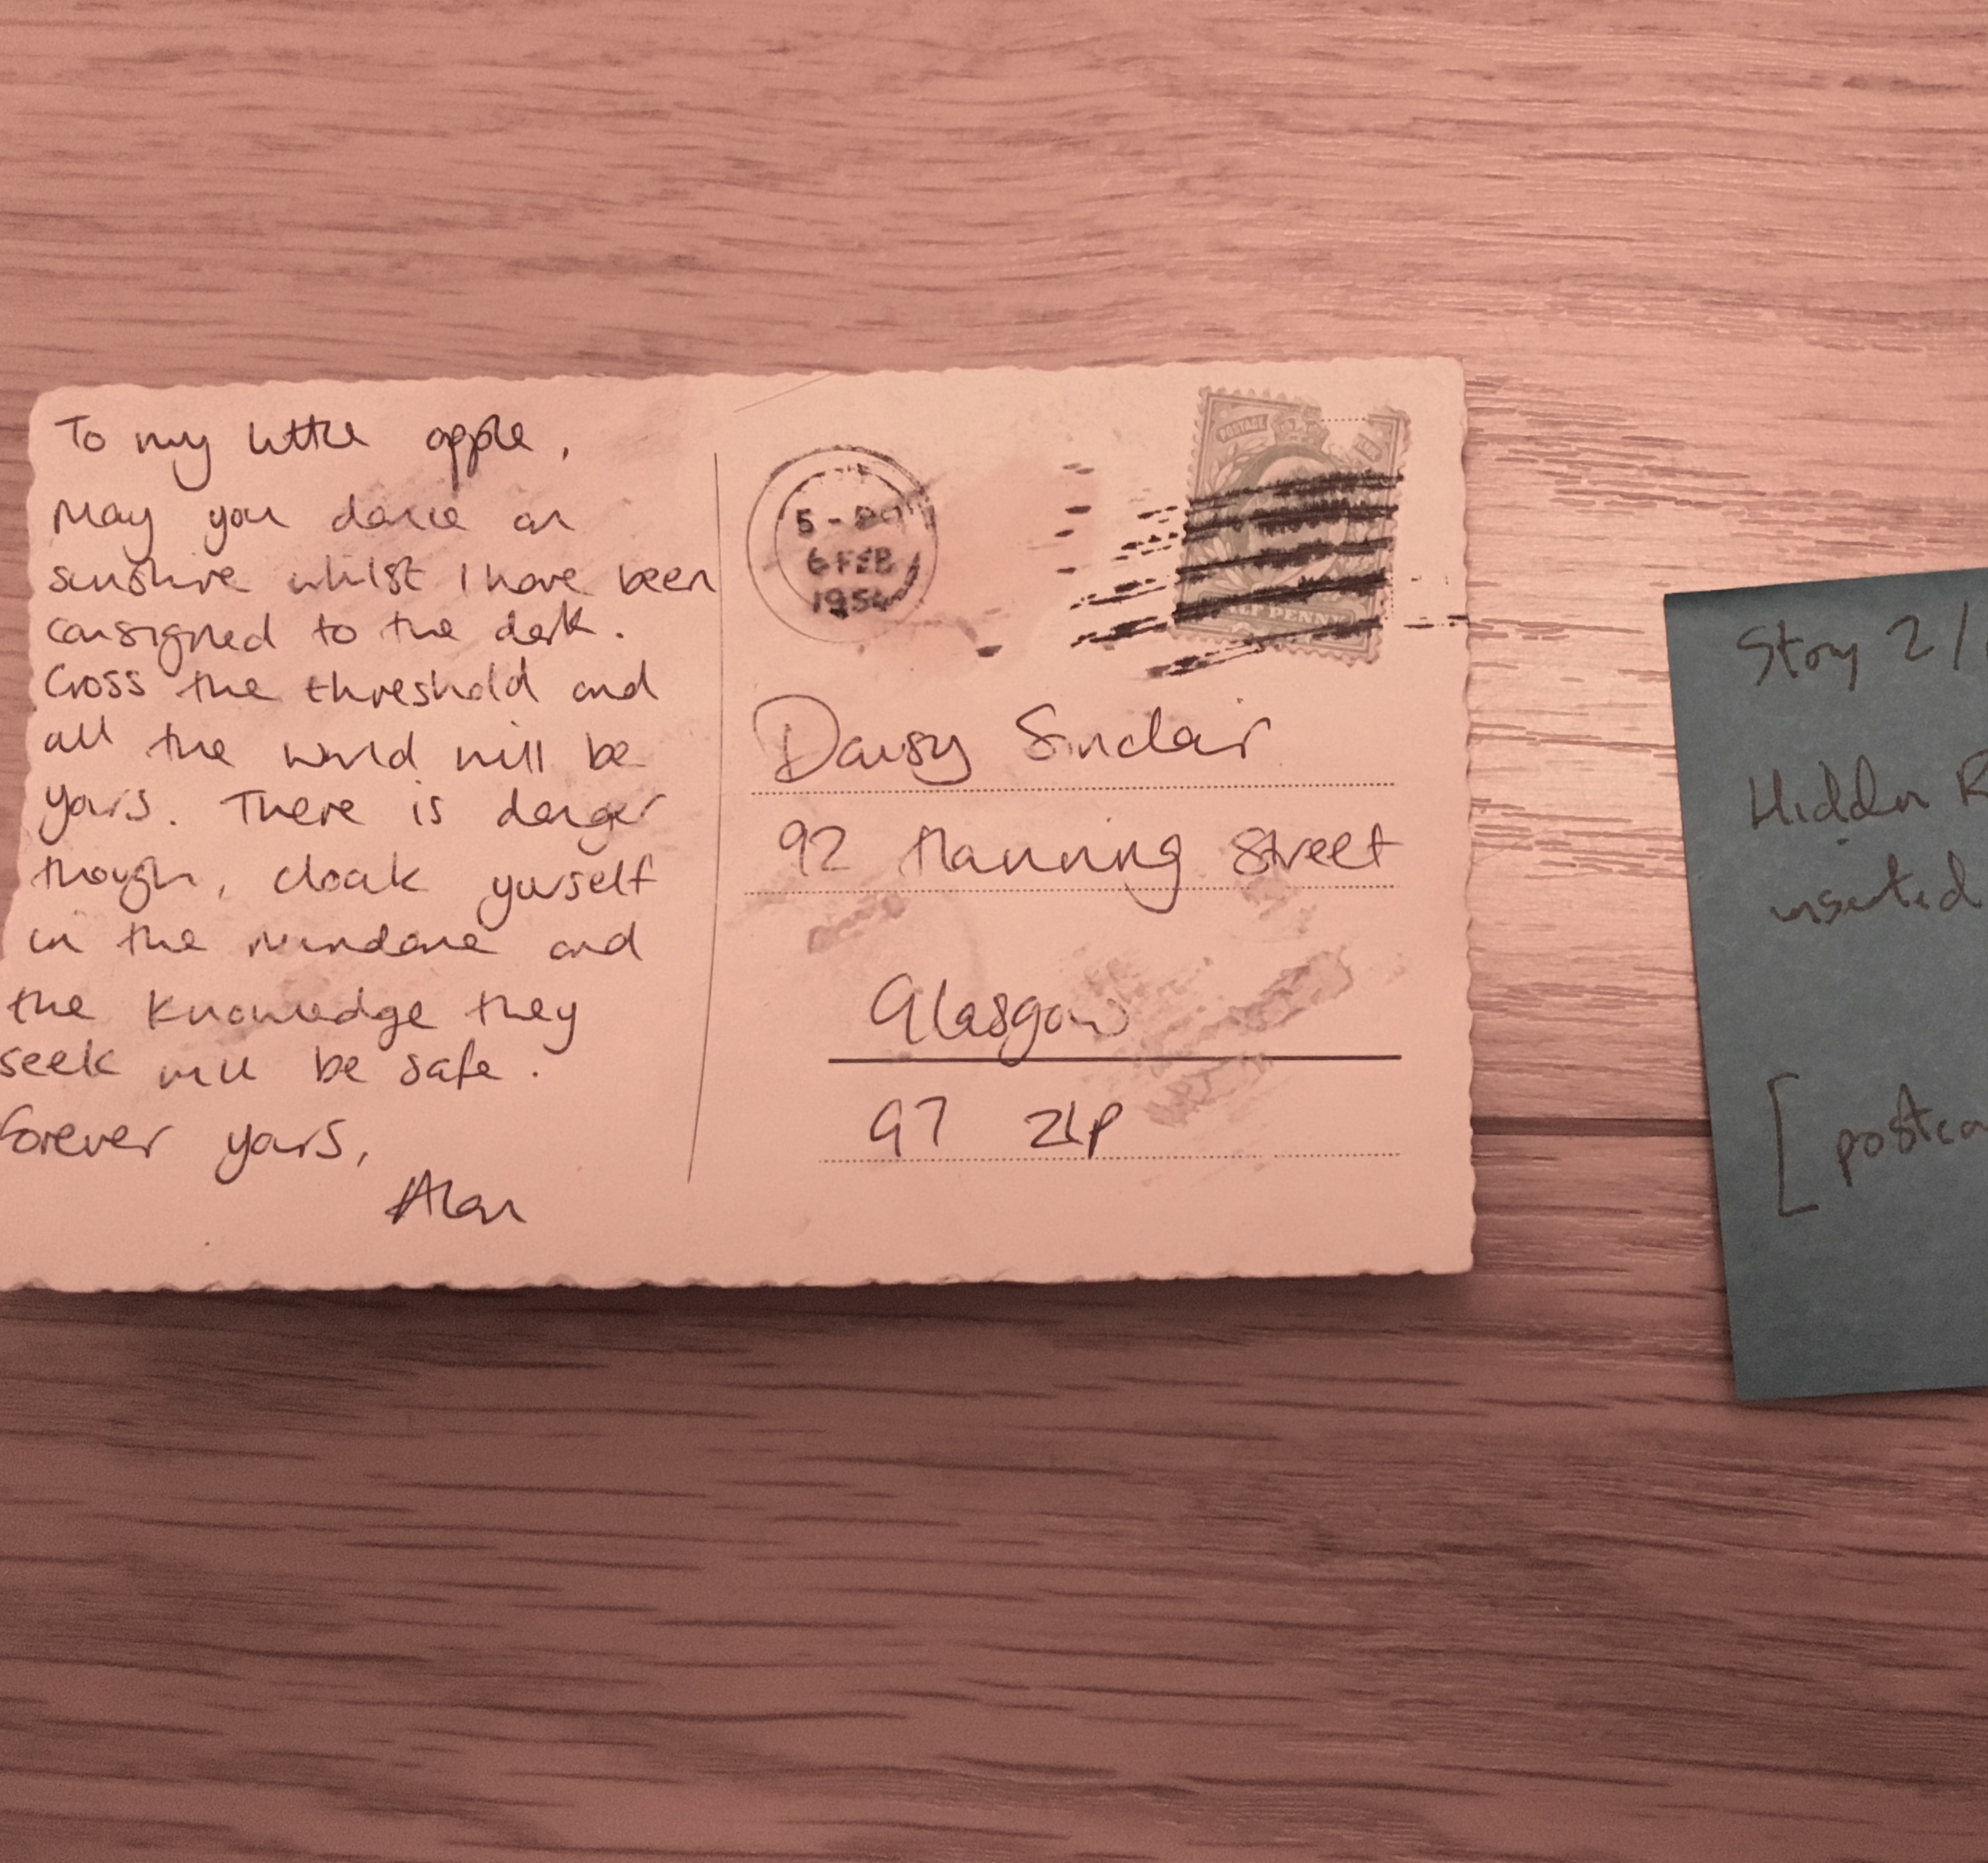 To my little apple,
May you dance on
sunshine whilst I have been
consigned to the dark.
Cross the threshold and
all the world will be
yours. There is danger
though, cloak yourself
in the mundane and
the knowledge they
seek will be safe.
Forever yours,
Alan
5 -
6 FEB
1954
POSTAGE
HALF PENNY
Daisy Sinclair
92 Manning Street
Glasgow
G7 2LP
Story 2/
Hidden R
inserted
[ postca